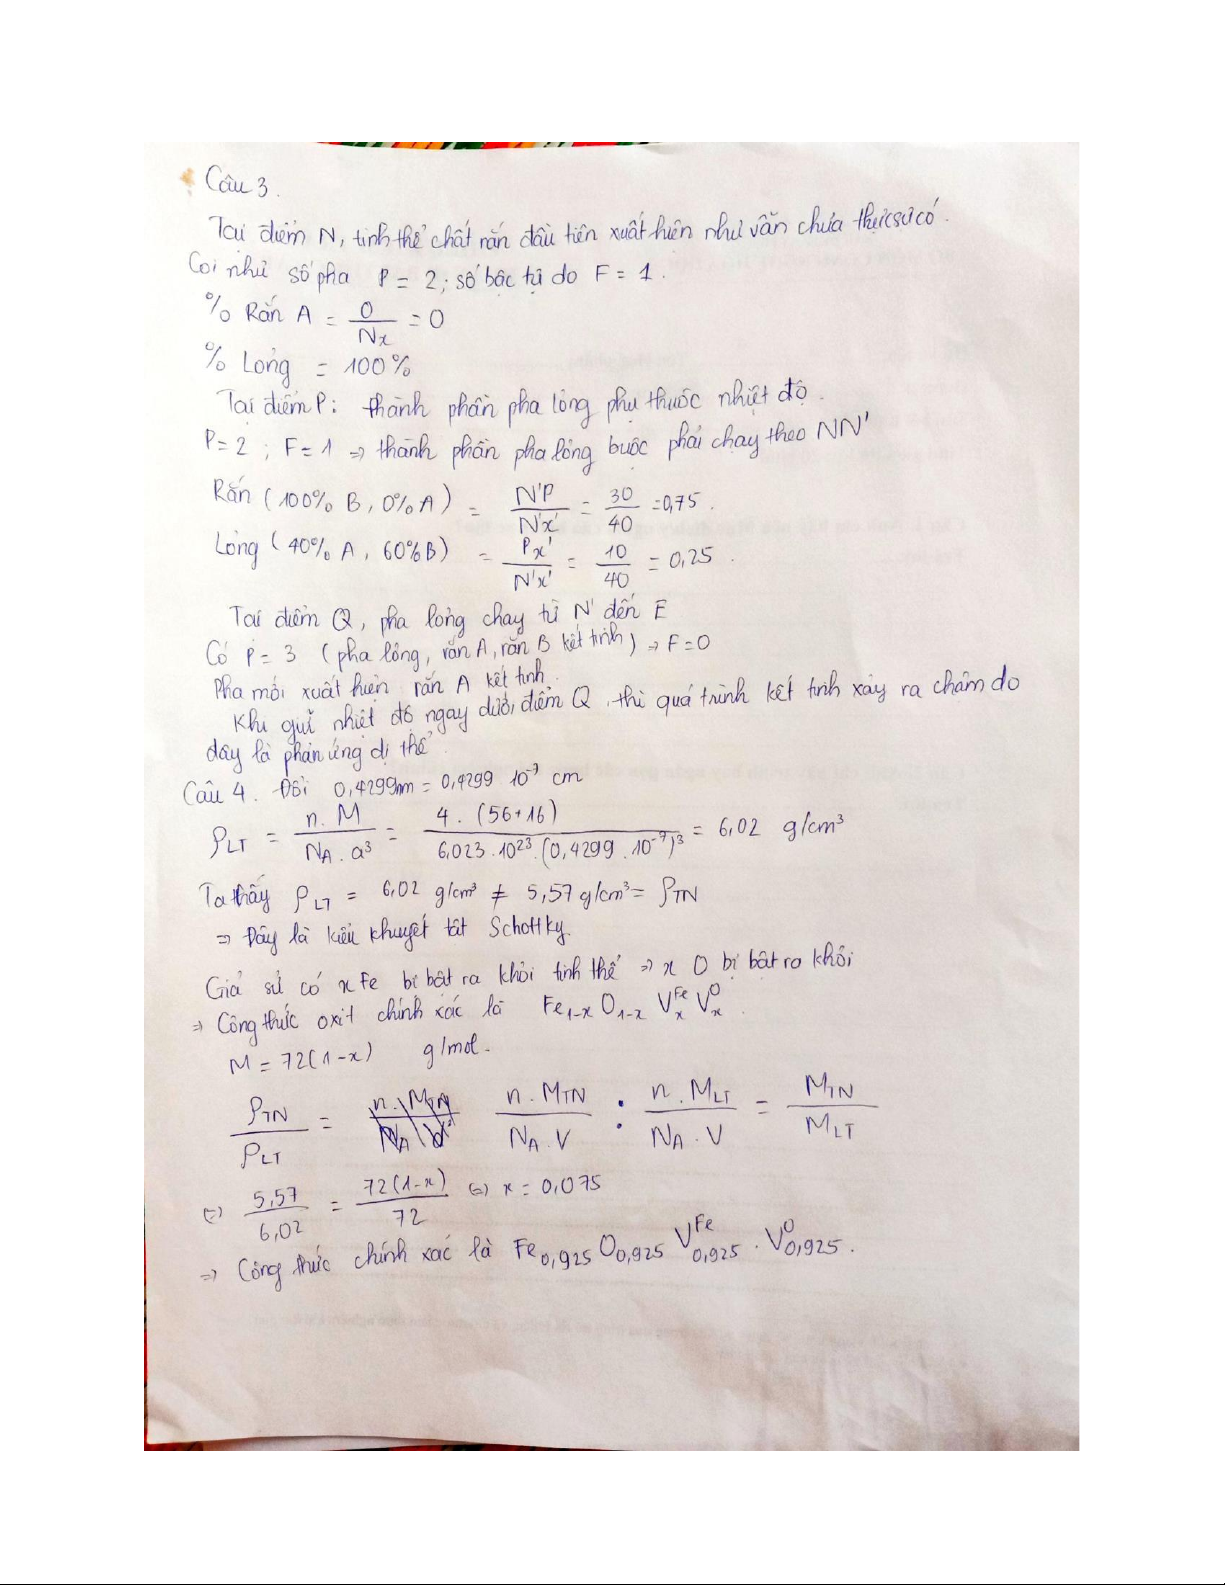 Câu 3.
Tại điểm N, tinh thể chất rắn đầu tiên xuất hiện như vẫn chưa thực sự có.
Coi như số pha P = 2 ; số bậc tự do F = 1.
% Rắn A = 0/Nx = 0
% Lỏng = 100%
Tại điểm P: thành phần pha lỏng phụ thuộc nhiệt độ.
P=2 ; F=1 => thành phần pha lỏng buộc phải chạy theo NN'
Rắn (100% B, 0% A) = N'P/N'x' = 30/40 = 0,75.
Lỏng (40% A, 60% B) = Px'/N'x' = 10/40 = 0,25.
Tại điểm Q, pha lỏng chạy từ N' đến E
Có P = 3 (pha lỏng, rắn A, rắn B kết tinh) → F=0
Pha mới xuất hiện rắn A kết tinh.
Khi giữ nhiệt độ ngay dưới điểm Q, thì quá trình kết tinh xảy ra chậm do
đây là phản ứng dị thể.
Câu 4. Đổi 0,4299nm = 0,4299 10⁻⁷ cm
ρLT = n.M/NA.a³ = 4.(56+16)/6,023.10²³.(0,4299.10⁻⁷)³ = 6,02 g/cm³
Ta thấy ρLT = 6,02 g/cm³ ≠ 5,57 g/cm³ = ρTN
=> Đây là kiểu khuyết tật Schottky.
Giả sử có x Fe bị bật ra khỏi tinh thể => x O bị bật ra khỏi
=> Công thức oxit chính xác là Fe₁₋ₓ O₁₋ₓ VₓFe VₓO.
M = 72(1-x) g/mol.
ρTN/ρLT = n.MTN/NA.V : n.MLT/NA.V = MTN/MLT
(=) 5,57/6,02 = 72(1-x)/72 (=) x = 0,075
=> Công thức chính xác là Fe0,925 O0,925 VFe0,925 . VO0,925.